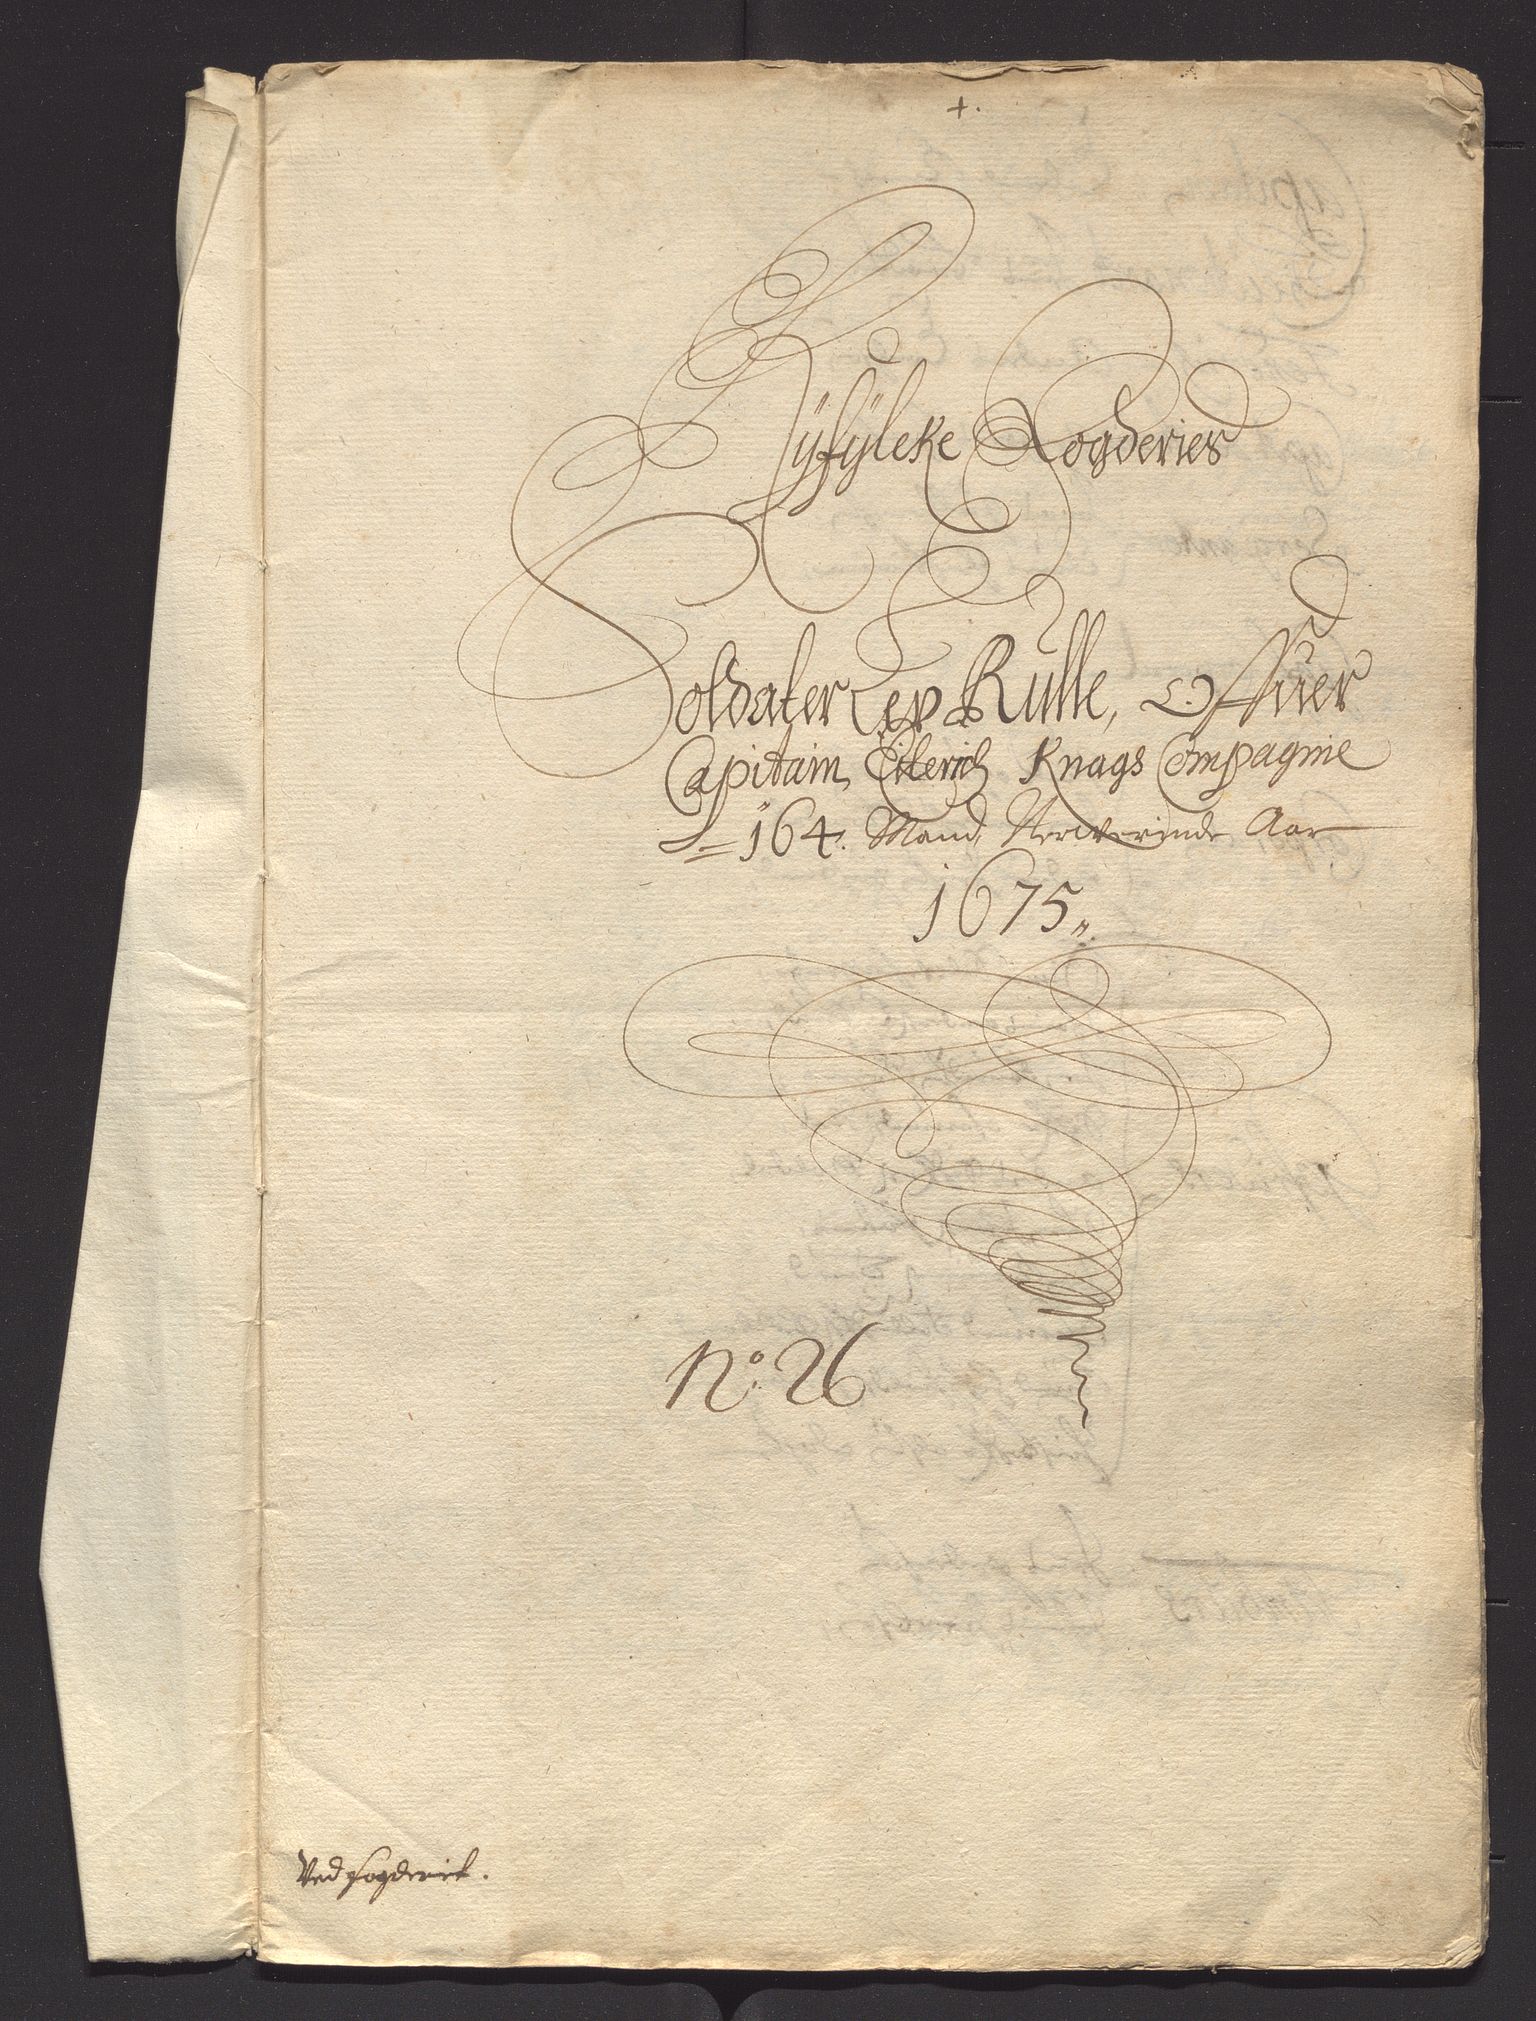 +.
Ryfylcke Fogderies
Soldater Rulle, Offuer
Capitain Knags Compagnie
164. Mand, Nerwerende Aar
1675
No: 26
Ved fogderiet.